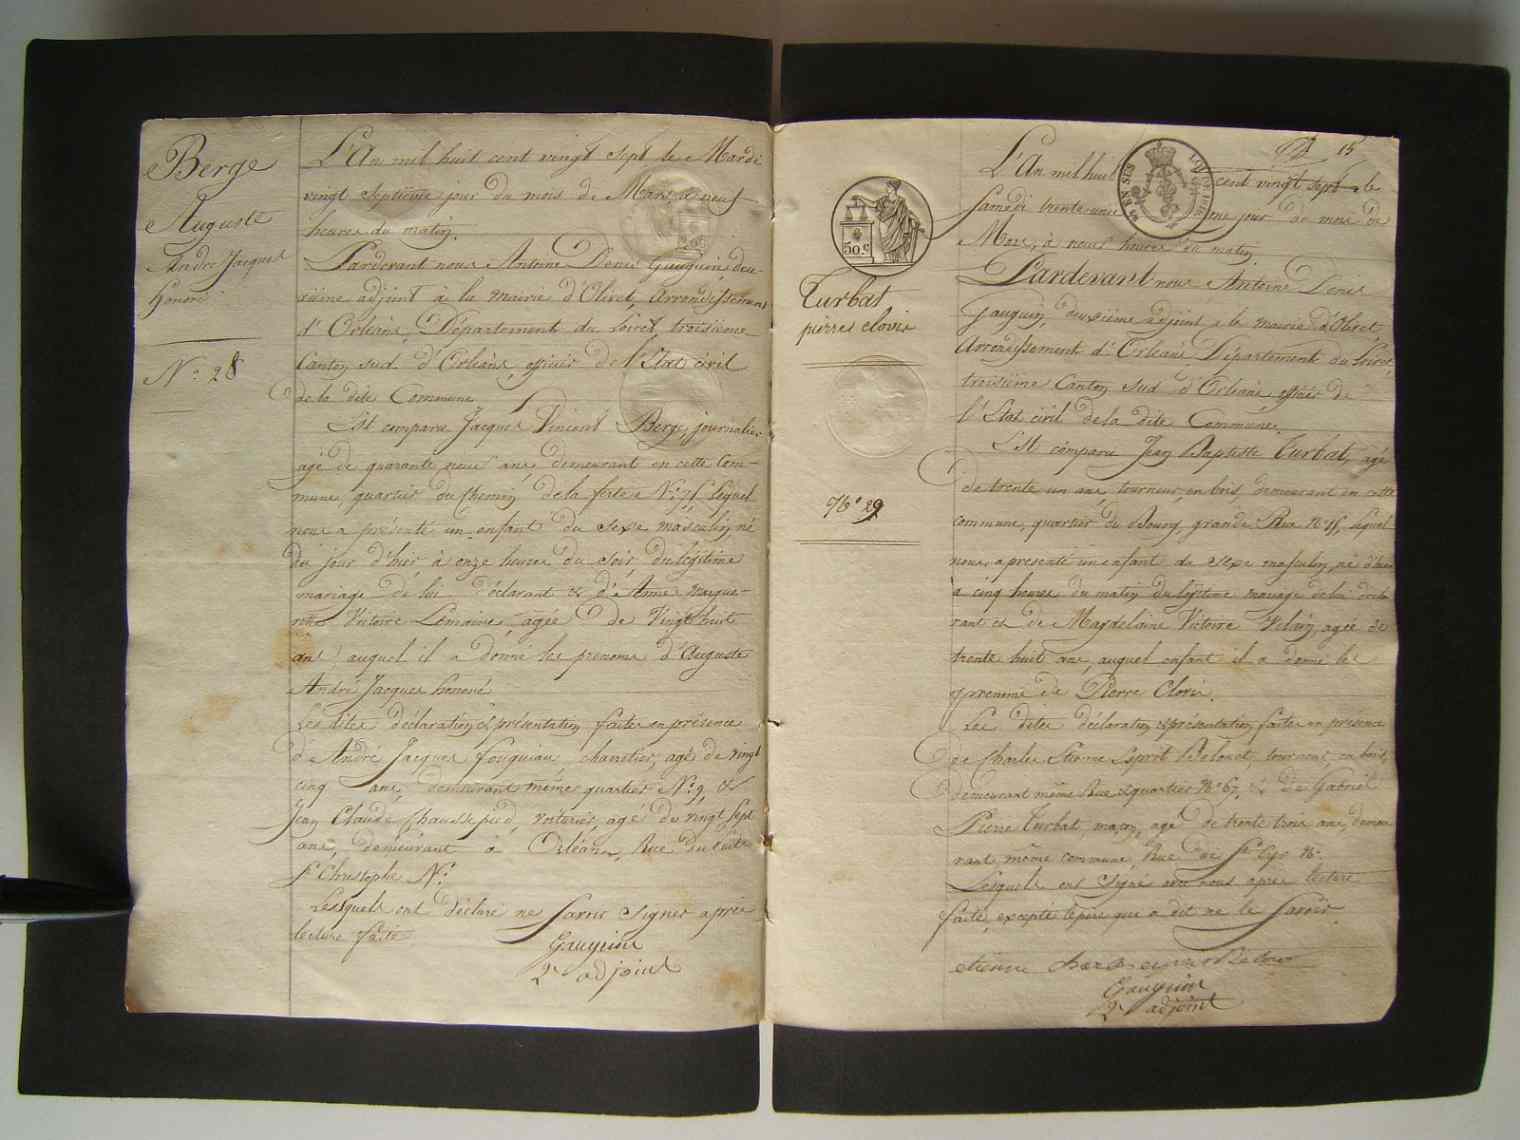 Berge
Auguste
André Jacques
honoré
N.o 28
L'An mil huit cent vingt sept le Mardi
vingt septième jour du mois de Mars à neuf
heures du matin.
Pardevant nous Antoine Denis Gauguin, deu-
xième adjoint à la mairie d'Olivet, Arrondissement
d'Orléans, Département du Loiret, troisième
Canton sud d'Orléans, officier de l'Etat civil
de la dite Commune
Est comparu Jacques Vincent Berge, journalier
agé de quarante neuf ans, demeurant en cette Com-
mune, quartier du Chemin de la ferté N.o lequel
nous a présenté un enfant du sexe masculin, né
du jour d'hier à onze heures du soir, du légitime
mariage de lui déclarant & d'Anne Margue-
rite Victoire Lemoine, agée de Vingt huit
ans, auquel il a donné les prenoms d'Auguste
André Jacques honoré
Les dites déclaration & présentation faites en présence
d'André Jacques fouqueau, charretier, agé de vingt
cinq ans, demeurant même quartier N.o 9, &
Jean Claude Chaussepied, voiturier, agé de vingt sept
ans, demeurant à Orléans, Rue du
St Christophe N.o
Lesquels ont déclaré ne savoir signer après
lecture faite
Gauguin
2e adjoint
15
L'An mil huit cent vingt sept le
Samedi trente unième jour du mois de
Mars, à neuf heures du matin
50.c
Turbat
pierre clovis
N.o 29
Pardevant nous Antoine Denis
Gauguin, deuxième adjoint à la mairie d'Olivet
Arrondissement d'Orléans Département du Loiret,
troisième Canton sud d'Orléans officier de
l'Etat civil de la dite Commune.
Est comparu Jean Baptiste Turbat, agé
de trente un ans, tourneur en bois, demeurant en cette
commune, quartier du Bourg, grande Rue N.o lequel
nous a présenté un enfant du sexe masculin, né d'hier
à cinq heures du matin du légitime mariage de lui décla-
rant et de Magdelaine Victoire Vilain, agée de
trente huit ans, auquel enfant il a donné les
prenoms de Pierre Clovis.
Les dites déclaration & présentation faites en présence
de Charles Etienne Esprit tourneur en bois,
demeurant même Rue & quartier N.o 67, & de Gabriel
Pierre Turbat, maçon, agé de trente trois ans, demeu-
rant, même commune, Rue de St Cyr N.o
Lesquels ont signé avec nous après lecture
faite, excepté le père qui a dit ne le savoir.
etienne
Gauguin
2e adjoint